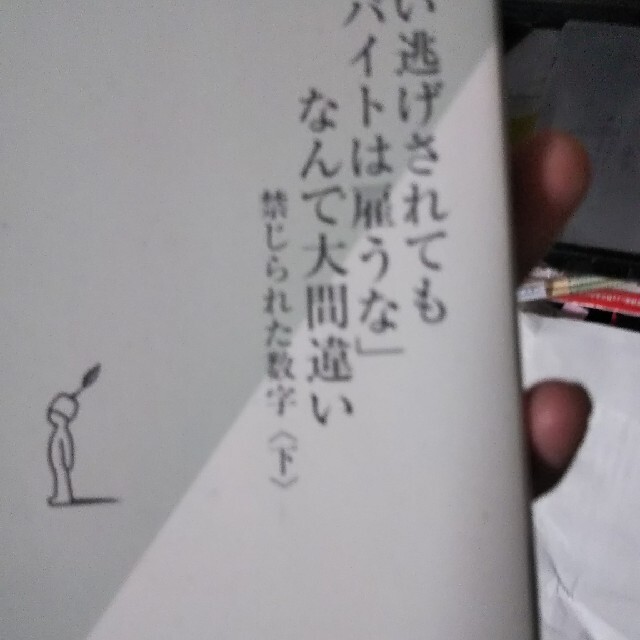 い逃げされても
バイトは雇うな」
なんて大間違い
禁じられた数字〈下〉